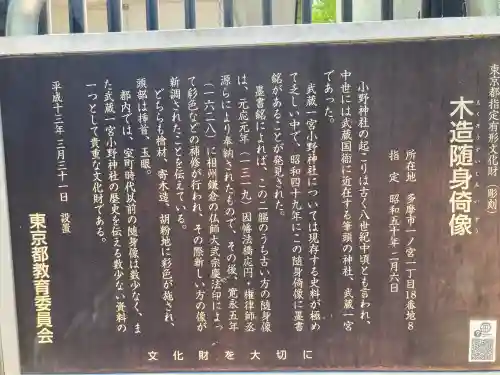 東京都指定有形文化財（彫刻）
木造随身倚像
もくぞうずいしんいぞう
所在地　多摩市一ノ宮一丁目18番地8
指　定　昭和五十年二月六日
小野神社の起こりは古く八世紀中頃とも言われ、
中世には武蔵国衙に近在する筆頭の神社、武蔵一宮
であった。
武蔵一宮小野神社については現存する史料が極め
て乏しい中で、昭和四十九年にこの随身倚像に墨書
銘があることが発見された。
墨書銘によれば、この二軀のうち古い方の随身像
は、元応元年（一三一九）因幡法橋応円・権律師丞
源らにより奉納されたもので、その後、寛永五年
（一六二八）に相州鎌倉の仏師大弐宗慶法印によっ
て彩色などの補修が行われ、その際新しい方の像が
新調されたことを伝えている。
どちらも檜材、寄木造、胡粉地に彩色が施され、
頭部は挿首、玉眼。
都内では、室町時代以前の随身像は数少なく、ま
た武蔵一宮小野神社の歴史を伝える数少ない資料の
一つとして貴重な文化財である。
平成十三年三月三十一日　設置
東京都教育委員会
文化財を大切に